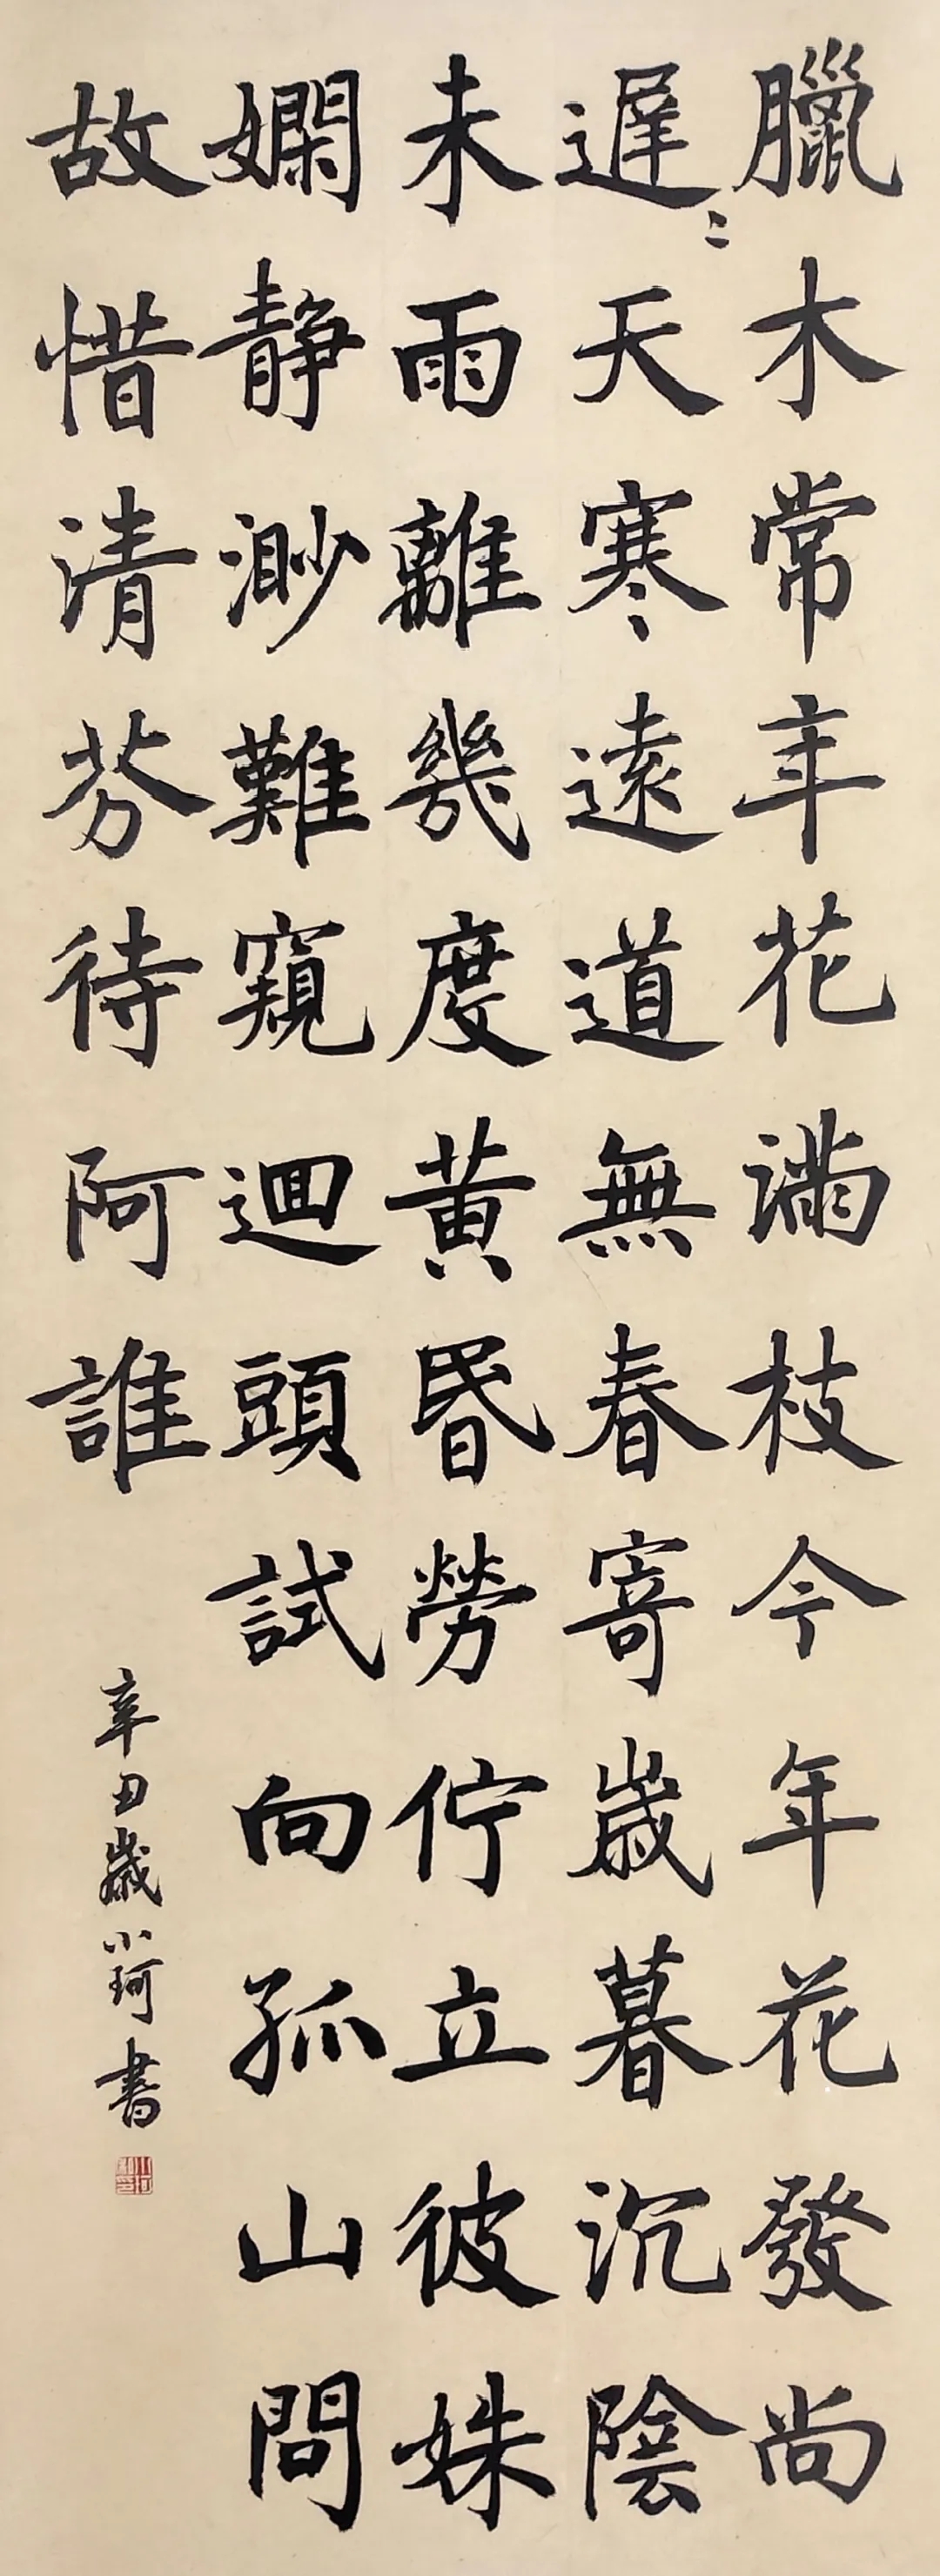 臘木常年花滿枝今年花發尚
遲遲天寒遠道無春寄歲暮沉陰
未雨離幾度黃昏勞佇立彼姝
嫻靜渺難窺迴頭試向孤山問
故惜清芬待阿誰
辛丑歲小珂書